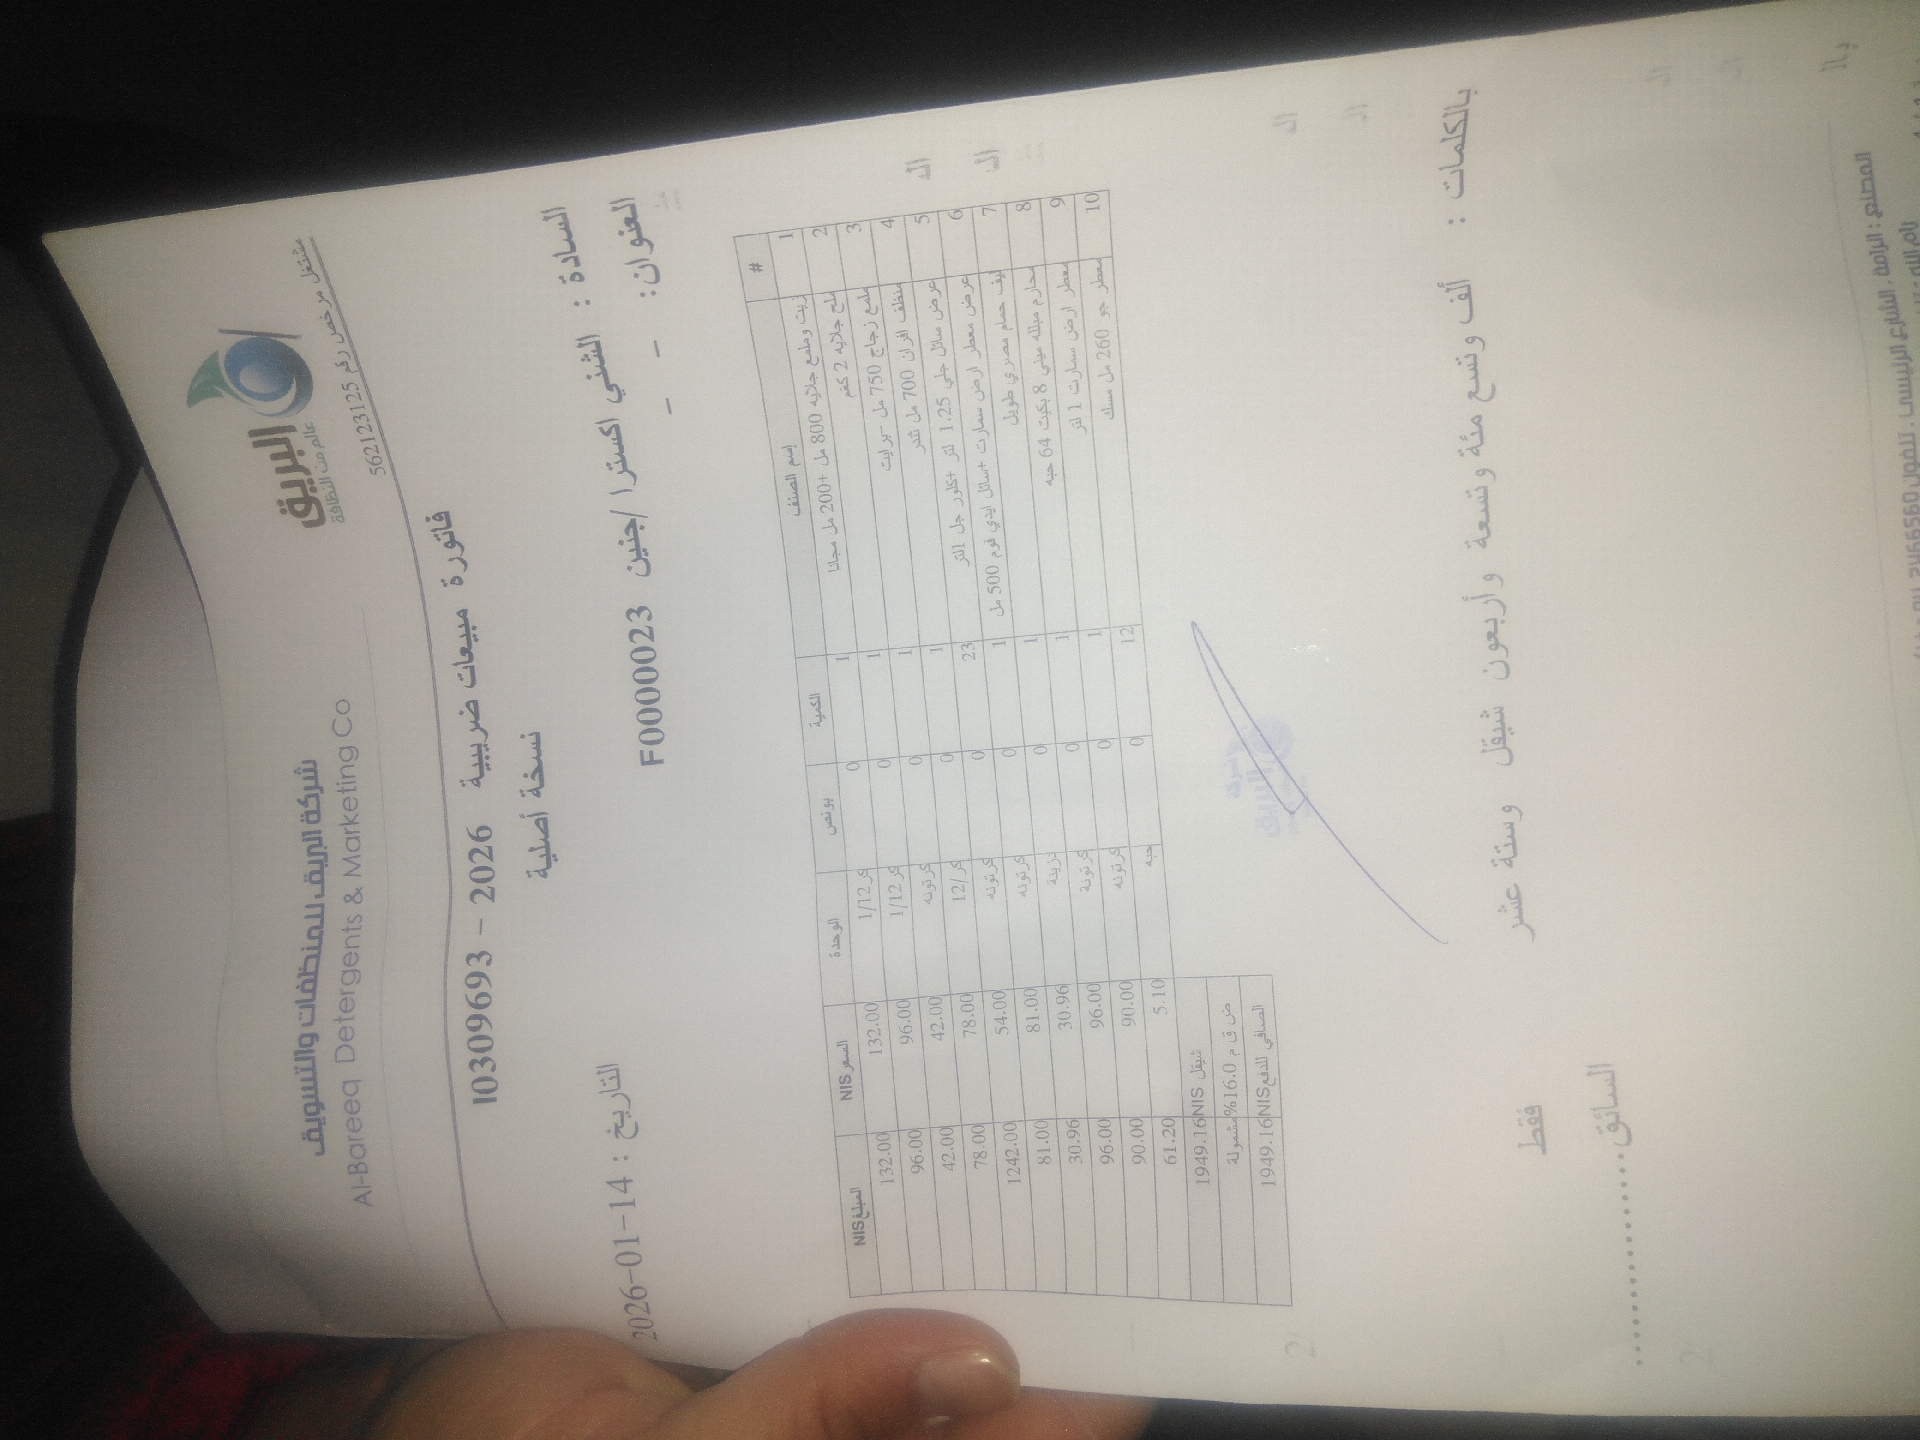 شركة البريق للمنظفات والتسويق
Al-Bareeq Detergents & Marketing Co
البريق
عالم من النظافة
مشتغل مرخص رقم 562123125
فاتورة مبيعات ضريبية 2026 - I0309693
نسخة أصلية
السادة : الشني اكسترا /جنين F0000023
التاريخ : 14-01-2026
العنوان: - -
# إسم الصنف الكمية بونص الوحدة السعر NIS المبلغ NIS
1 زيت وملمع جلايه 800 مل +200 مل مجانا 1 0 كر 1/12 132.00 132.00
2 ملح جلايه 2 كغم 1 0 كر 1/12 96.00 96.00
3 ملمع زجاج 750 مل -برايت 1 0 كرتونه 42.00 42.00
4 منظف افران 700 مل ثندر 1 0 كر/12 78.00 78.00
5 عرض سائل جلي 1.25 لتر +كلور جل 1لتر 23 0 كرتونه 54.00 1242.00
6 عرض معطر ارض سمارت +سائل ايدي فوم 500 مل 1 0 كرتونه 81.00 81.00
7 ليف حمام مصري طويل 1 0 دزينة 30.96 30.96
8 محارم مبلله ميني 8 بكيت 64 حبه 1 0 كرتونة 96.00 96.00
9 معطر ارض سمارت 1 لتر 1 0 كرتونه 90.00 90.00
10 معطر جو 260 مل مسك 12 0 حبه 5.10 61.20
شيقل NIS 1949.16
ض ق م 16.0% مشمولة
الصافي للدفع NIS 1949.16
البريق
بالكلمات : ألف وتسع مئة وتسعة وأربعون شيقل وستة عشر
فقط
السائق ....................
المصنع : الرامة ، الشارع الرئيسي ،